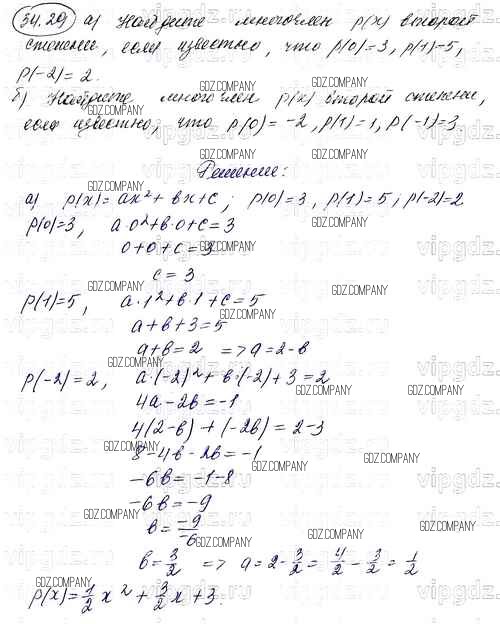 34.29 а) Найдите многочлен p(x) второй
степени, если известно, что p(0)=3, p(1)=5,
p(-2)=2.
б) Найдите многочлен p(x) второй степени,
если известно, что p(0)=-2, p(1)=1, p(-1)=3.
Решение:
а) p(x)=ax²+bx+c; p(0)=3, p(1)=5; p(-2)=2
p(0)=3, a·0²+b·0+c=3
0+0+c=3
c=3
p(1)=5, a·1²+b·1+c=5
a+b+3=5
a+b=2 =>a=2-b
p(-2)=2, a·(-2)²+b·(-2)+3=2
4a-2b=-1
4(2-b)+(-2b)=2-3
8-4b-2b=-1
-6b=-1-8
-6b=-9
b=-9/-6
b=3/2 => a=2-3/2=4/2-3/2=1/2
p(x)=1/2x²+3/2x+3.
GDZ.COMPANY
vipgdz.ru